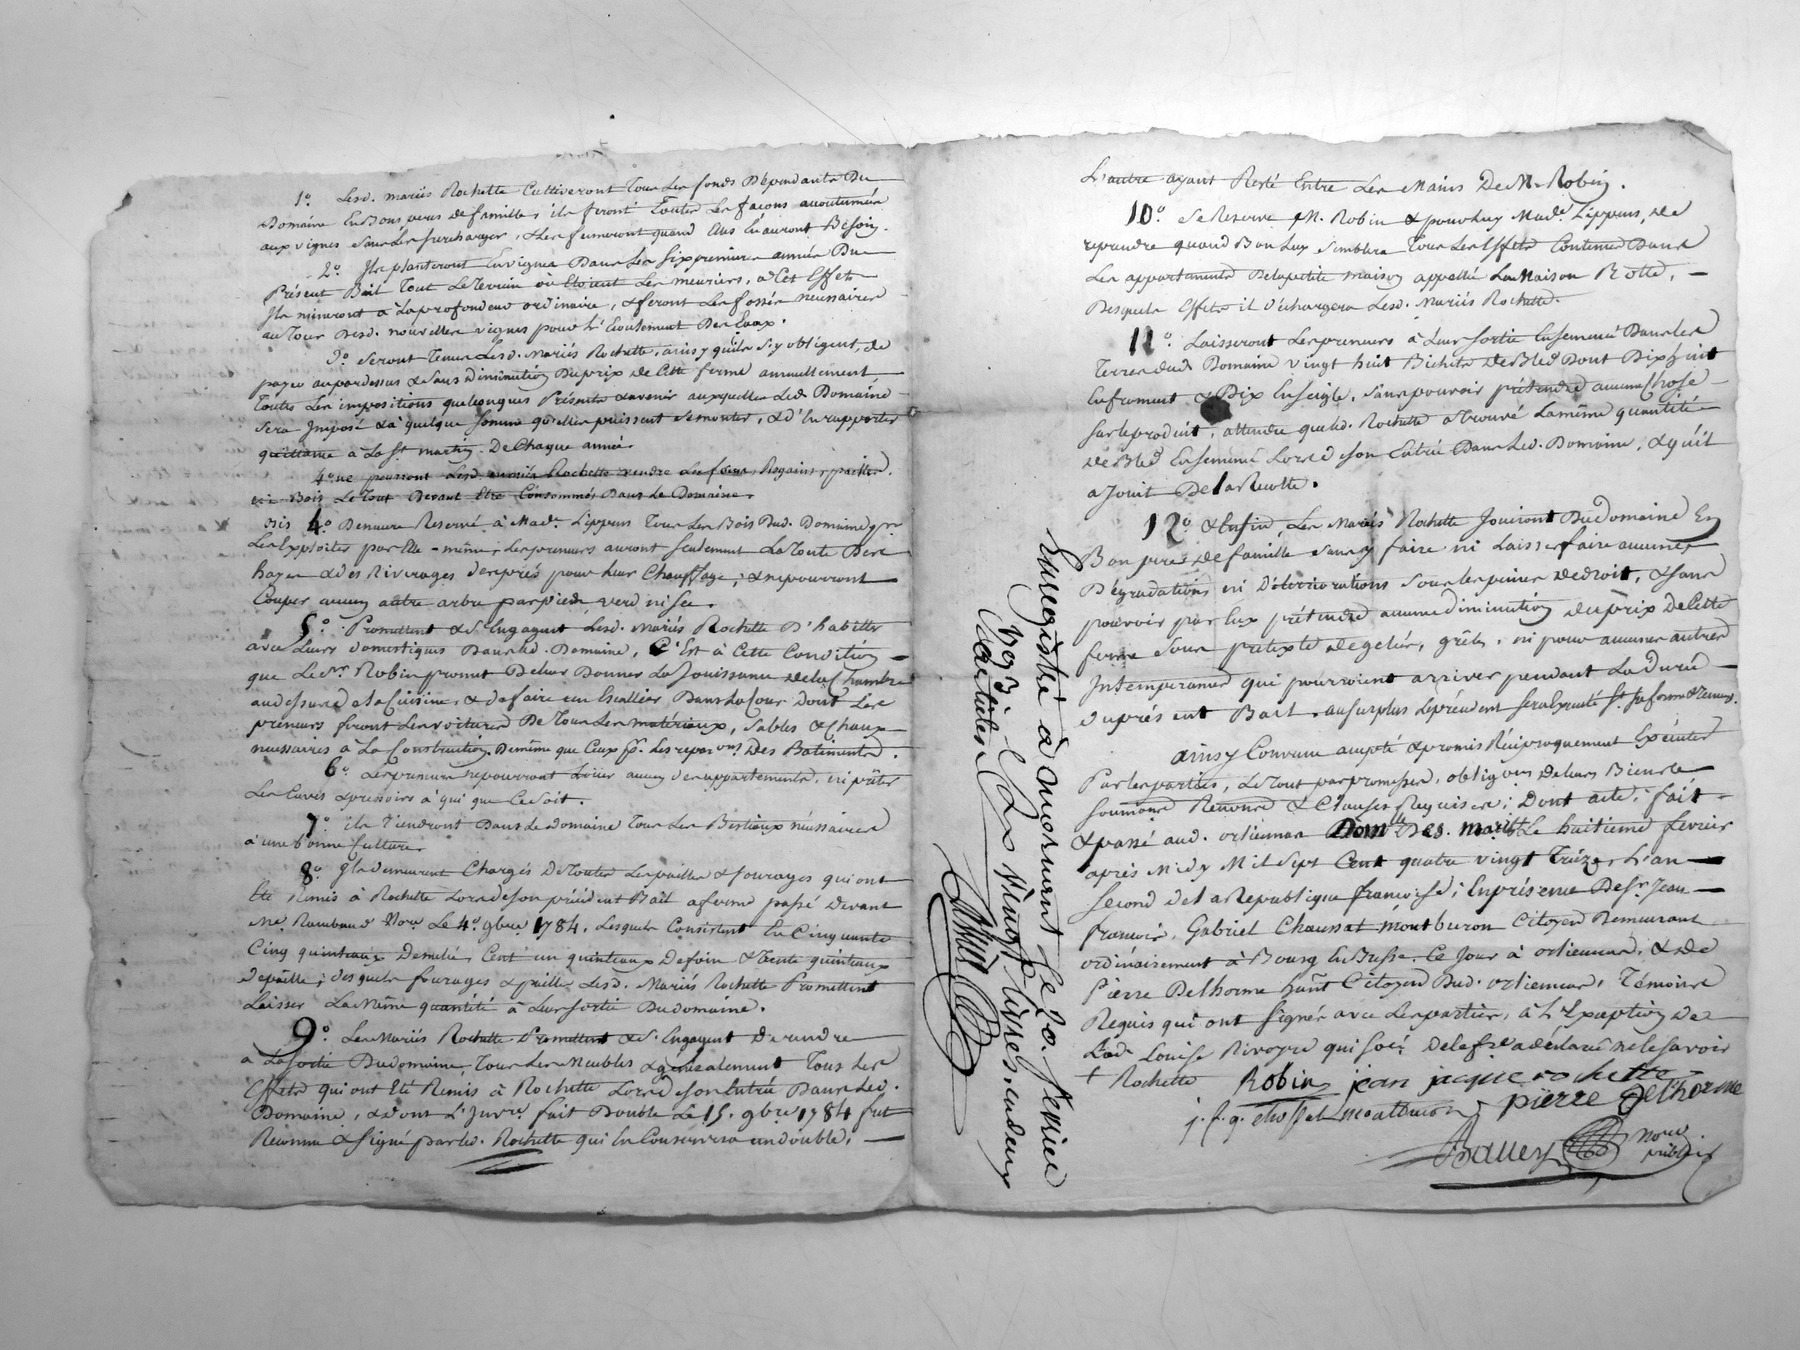 1º. Lesd. mariés Rochette Cultiveront Tous Les fonds Dépendants Du
Domaine En Bons peres de famille, ils feront Toutes Les façons accoutumées
aux vignes sans Les surcharger, & Les fumeront quand Elles En auront Besoin.
2º. Ils planteront En vignes Dans Les six premieres années Du
Présent Bail Tout Le Terrein où Etoient Les meuriers, a Cet Effet
Ils mineront à La profondeur ordinaire, & feront Les fossés necessaires
au Tour Desd. nouvelles vignes pour L'Ecoulement Des Eaux.
3º. Seront Tenus Lesd. Mariés Rochette, ainsy quils s'y obligent, de
payer au pardessus & Sans Diminution Du prix de Cette ferme annuellement
Toutes Les impositions quelconques Présentes & avenir auxquelles Led. Domaine
sera Imposé & à quelque Somme qu'elles puissent se monter, & d'En rapporter
quittance à La St. martin De Chaque année.
4º ne pourront Lesd. mariés Rochette vendre Les foins, Regains, pailles,
ni Bois Le Tout Devant Etre Consommés Dans Le Domaine.
Bis 4º. Demeure Reservé à Made. Lippens Tous Les Bois Dud. Domaine pr.
Les Exploiter par Elle-même; Les preneurs auront seulement La Tonte Des
hayes & des Riverages des près pour Leur Chauffage; & ne pourront
Couper aucun autre arbre par pied, verd ni sec.
5º. Promettent & s'Engagent Lesd. Mariés Rochette D'habiter
avec Leurs Domestiques Dans Led. Domaine, C'Est à Cette Condition
que Le Sr. Robin promet De Leur Donner La Jouissance de La Chambre
au dessus de La Cuisine, & de faire un Escallier Dans La Cour Dont Les
preneurs feront Les voitures De Tous Les materiaux, Sables & Chaux
necessaires à La Construction, De même que Ceux pr. Les reparons. Des Batiments.
6º. Les preneurs ne pourront Loüer aucun des appartements, ni prêter
Les Cuves & pressoirs à qui que Ce soit.
7º. ils Tiendront Dans Le Domaine Tous Les Bestiaux necessaires
à une Bonne Culture.
8º. Ils demeurent Chargés De Toutes Les pailles & fourages qui ont
Eté Remis à Rochette Lors de son précédent Bail a ferme passé Devant
Me. Rambaud Nore. Le 4º. 9bre 1784. Lesquels Consistent En Cinquante
Cinq quintaux Demelée, Cent un quintaux De foin & Trente quintaux
De paille; desquels fourages & pailles Lesd. Mariés Rochette Promettent
Laisser La Même quantité à Leur Sortie Du domaine.
9º. Les Mariés Rochette Promettent & s'Engagent De rendre
a La Sortie Du domaine, Tous Les Meubles & généralement Tous Les
Effets qui ont Eté Remis à Rochette Lors de son Entrée Dans Led.
Domaine, & dont L'Invre. fait Double Le 15. 9bre 1784 fut
Reconnu & signé par Led. Rochette qui En Conservera un double,
L'autre ayant Resté Entre Les Mains De Mr. Robin.
10º. Se Reserve Mr. Robin & pour Luy Made. Lippens, de
reprendre quand Bon Luy Semblera Tous Les Effets Contenus Dans
Les appartements De La petite maison appellé La Maison Rotte,
Desquels Effets il Déchargera Lesd. Mariés Rochette.
11º. Laisseront Les preneurs à Leur Sortie Ensemencé Dans Les
Terres dud. Domaine vingt huit Bichets De Bled Dont Dix huit
En froment & Dix En Seigle, Sans pouvoir prétendre aucune Chose
Sur Le produit, attendu que Led. Rochette a trouvé La même quantité
De Bled Ensemencé Lors de son Entrée Dans Led. Domaine, & qu'il
a Jouit De La Recolte.
12º. & Enfin, Les Mariés Rochette Jouiront Du Domaine En
Bon peres de famille sans y faire ni Laisser faire aucunes
Dégradations ni Déteriorations Sous Les peines de droit, & sans
pouvoir par Eux prétendre aucune diminution du prix De Cette
ferme Sous pretexte de gelées, grêles, ni pour aucunes autres
Intemperances qui pourroient arriver pendant La Durée
du présent Bail, au surplus Le précédent sera Executé St. sa forme & Teneur.
ainsy Convenu accepté & promis Réciproquement Executer
Par Les parties, Le Tout par promesses, obligons de Leurs Biens
Soumons. Renons. & Clauses Requises; Dont acte; fait
& passé aud. ortiemas Domle Des. mariés Le huitieme fevrier
après Midy Mil Sept Cent quatre vingt Treize, L'an
Second de La Republique françoise; En présence De Sr. Jean
françois, Gabriel Chaussat montburon Citoyen Demeurant
ordinairement à Bourg En Bresse, Ce Jour à ortiemas, & de
Pierre Delhorme habnt Citoyen Dud. ortiemas, Témoins
Requis qui ont signés avec Les parties, à L'Exception De
Lad. Louise Rivoyre qui De Ce Enquise a declaré ne le savoir
† Rochette Robin jean jacque rochette
j. f. g. chossat montburon pierre Delhorme
Nore
public
Enregistré à Montluel Le 20. fevrier
1793. Reçu Vingt Livres, en deux
articles